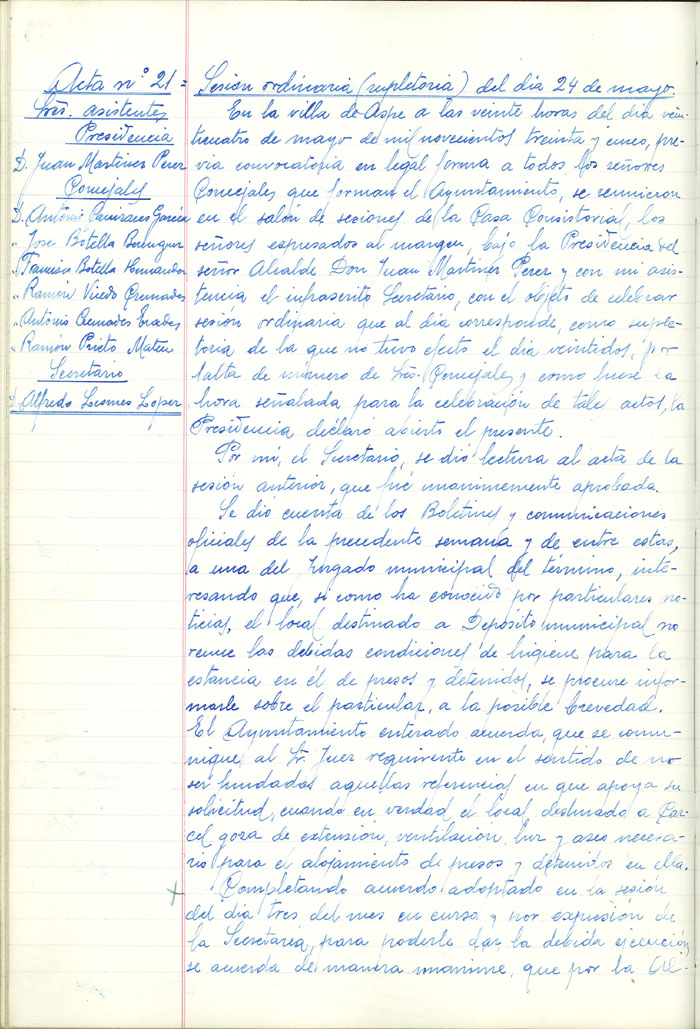 Acta nº 21 =
Sres. asistentes
Presidencia
D. Juan Martinez Perez
Concejales
D. Antonio Cañizares Garcia
" Jose Botella
" Francisco Botella Hernandez
" Ramón Cremades
" Antonio Cremades
" Ramón Prieto Mateu
Secretario
D. Alfredo Lesmes Lopez
Sesion ordinaria (supletoria) del dia 24 de mayo.
En la villa de Aspe a las veinte horas del dia vein
ticuatro de mayo de mil novecientos treinta y cinco, pre-
via convocatoria en legal forma a todos los señores
Concejales que forman el Ayuntamiento, se reunieron
en el salón de sesiones de la Casa Consistorial, los
señores expresados al margen, bajo la Presidencia del
señor Alcalde Don Juan Martinez Perez y con mi asis-
tencia el infrascrito Secretario, con el objeto de celebrar
sesión ordinaria que al dia corresponde, como suple-
toria de la que no tuvo efecto el dia veintidos, por
falta de número de Sres. Concejales y como fuese la
hora señalada para la celebración de tales actos, la
Presidencia declaró abierto el presente.
Por mi, el Secretario, se dió lectura al acta de la
sesión anterior, que fué unanimemente aprobada.
Se dio cuenta de los Boletines y comunicaciones
oficiales de la precedente semana y de entre estas,
a una del Juzgado municipal del término, inte-
resando que, si como ha conocido por particulares no-
ticias, el local destinado a Depósito municipal no
reune las debidas condiciones de higiene para la
estancia en él de presos y detenidos, se procure infor-
marle sobre el particular, a la posible brevedad.
El Ayuntamiento enterado acuerda, que se comu-
nique al Sr. Juez requirente en el sentido de no
ser fundadas aquellas referencias en que apoya su
solicitud, cuando en verdad el local destinado a Car-
cel goza de extensión, ventilación, luz y aseo necesa-
rio para el alojamiento de presos y detenidos en ella.
Completando acuerdo adoptado en la sesión
del dia tres del mes en curso y por expresión de
la Secretaria, para poderle dar la debida ejecución,
se acuerda de manera unanime, que por la Al-